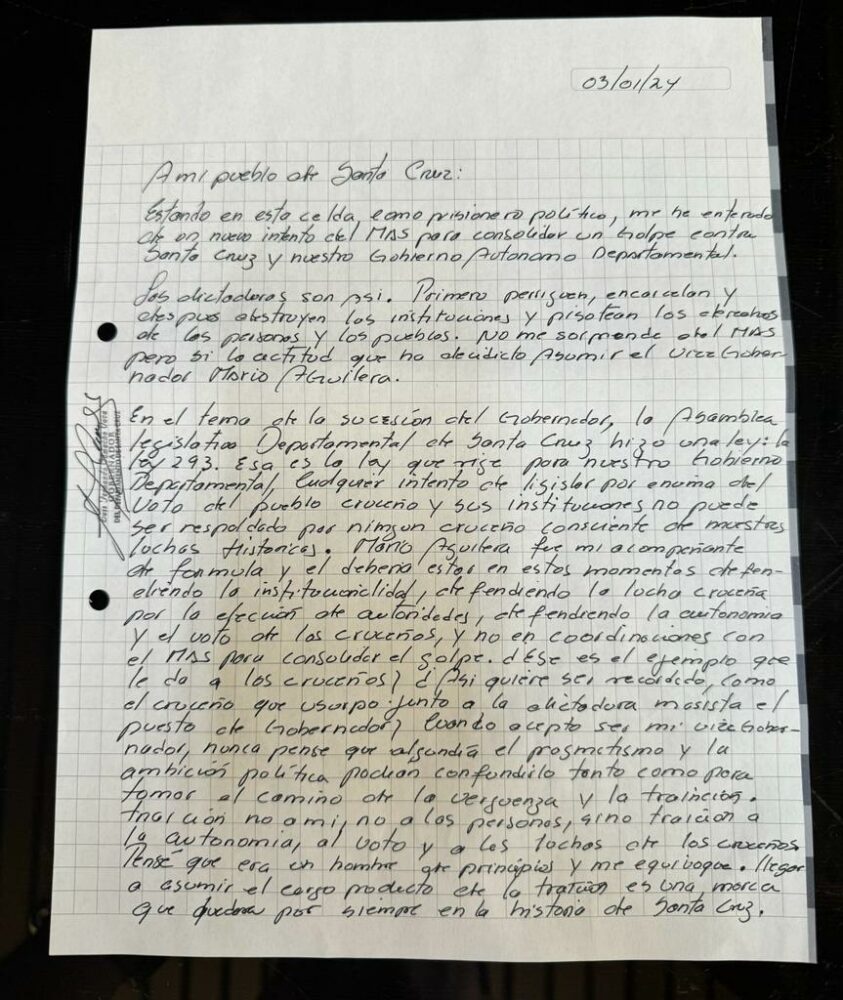 03/01/24
A mi pueblo de Santa Cruz:
Estando en esta celda, como prisionero político, me he enterado
de un nuevo intento del MAS para consolidar un Golpe contra
Santa Cruz y nuestro Gobierno Autonomo Departamental.
Los dictadores son Asi. Primero persiguen, encarcelan y
despues destruyen las instituciones y pisotean los derechos
de las personas y los pueblos. No me sorprende del MAS
pero si la actitud que ha decidido Asumir el vicegober-
nador Mario Aguilera.
En el tema de la sucesión del Gobernador, la Asamblea
legislativa Departamental de Santa Cruz hizo una ley: la
ley 293. Esa es la ley que rige para nuestro Gobierno
Departamental, Cualquier intento de ligislar por encima del
voto del pueblo cruceño y sus instituciones no puede
ser respaldado por ningun cruceño consciente de nuestras
luchas Historicas. Mario Aguilera fue mi acompañante
de formula y el deberia estar en estos momentos defen-
diendo la institucionalidad, defendiendo la lucha cruceña
por la elección de autoridades, defendiendo la autonomia
y el voto de los cruceños, y no en coordinaciones con
el MAS para consolidar el golpe. ¿Ese es el ejemplo que
le da a los cruceños? ¿Asi quiere ser recordado, como
el cruceño que usurpo junto a la dictadura masista el
puesto de Gobernador? Cuando acepto ser mi vicegober-
nador, nunca pense que algundia el pragmatismo y la
ambición política podian confundirlo tanto como para
tomar el camino de la verguenza y la traición.
traición no a mi, no a las personas, sino traición a
la autonomia, al voto y a las luchas de los cruceños.
Pensé que era un hombre de principios y me equivoque. llegar
a asumir el cargo producto de la traición es una marca
que quedara por siempre en la historia de Santa Cruz.
GOBERNADOR